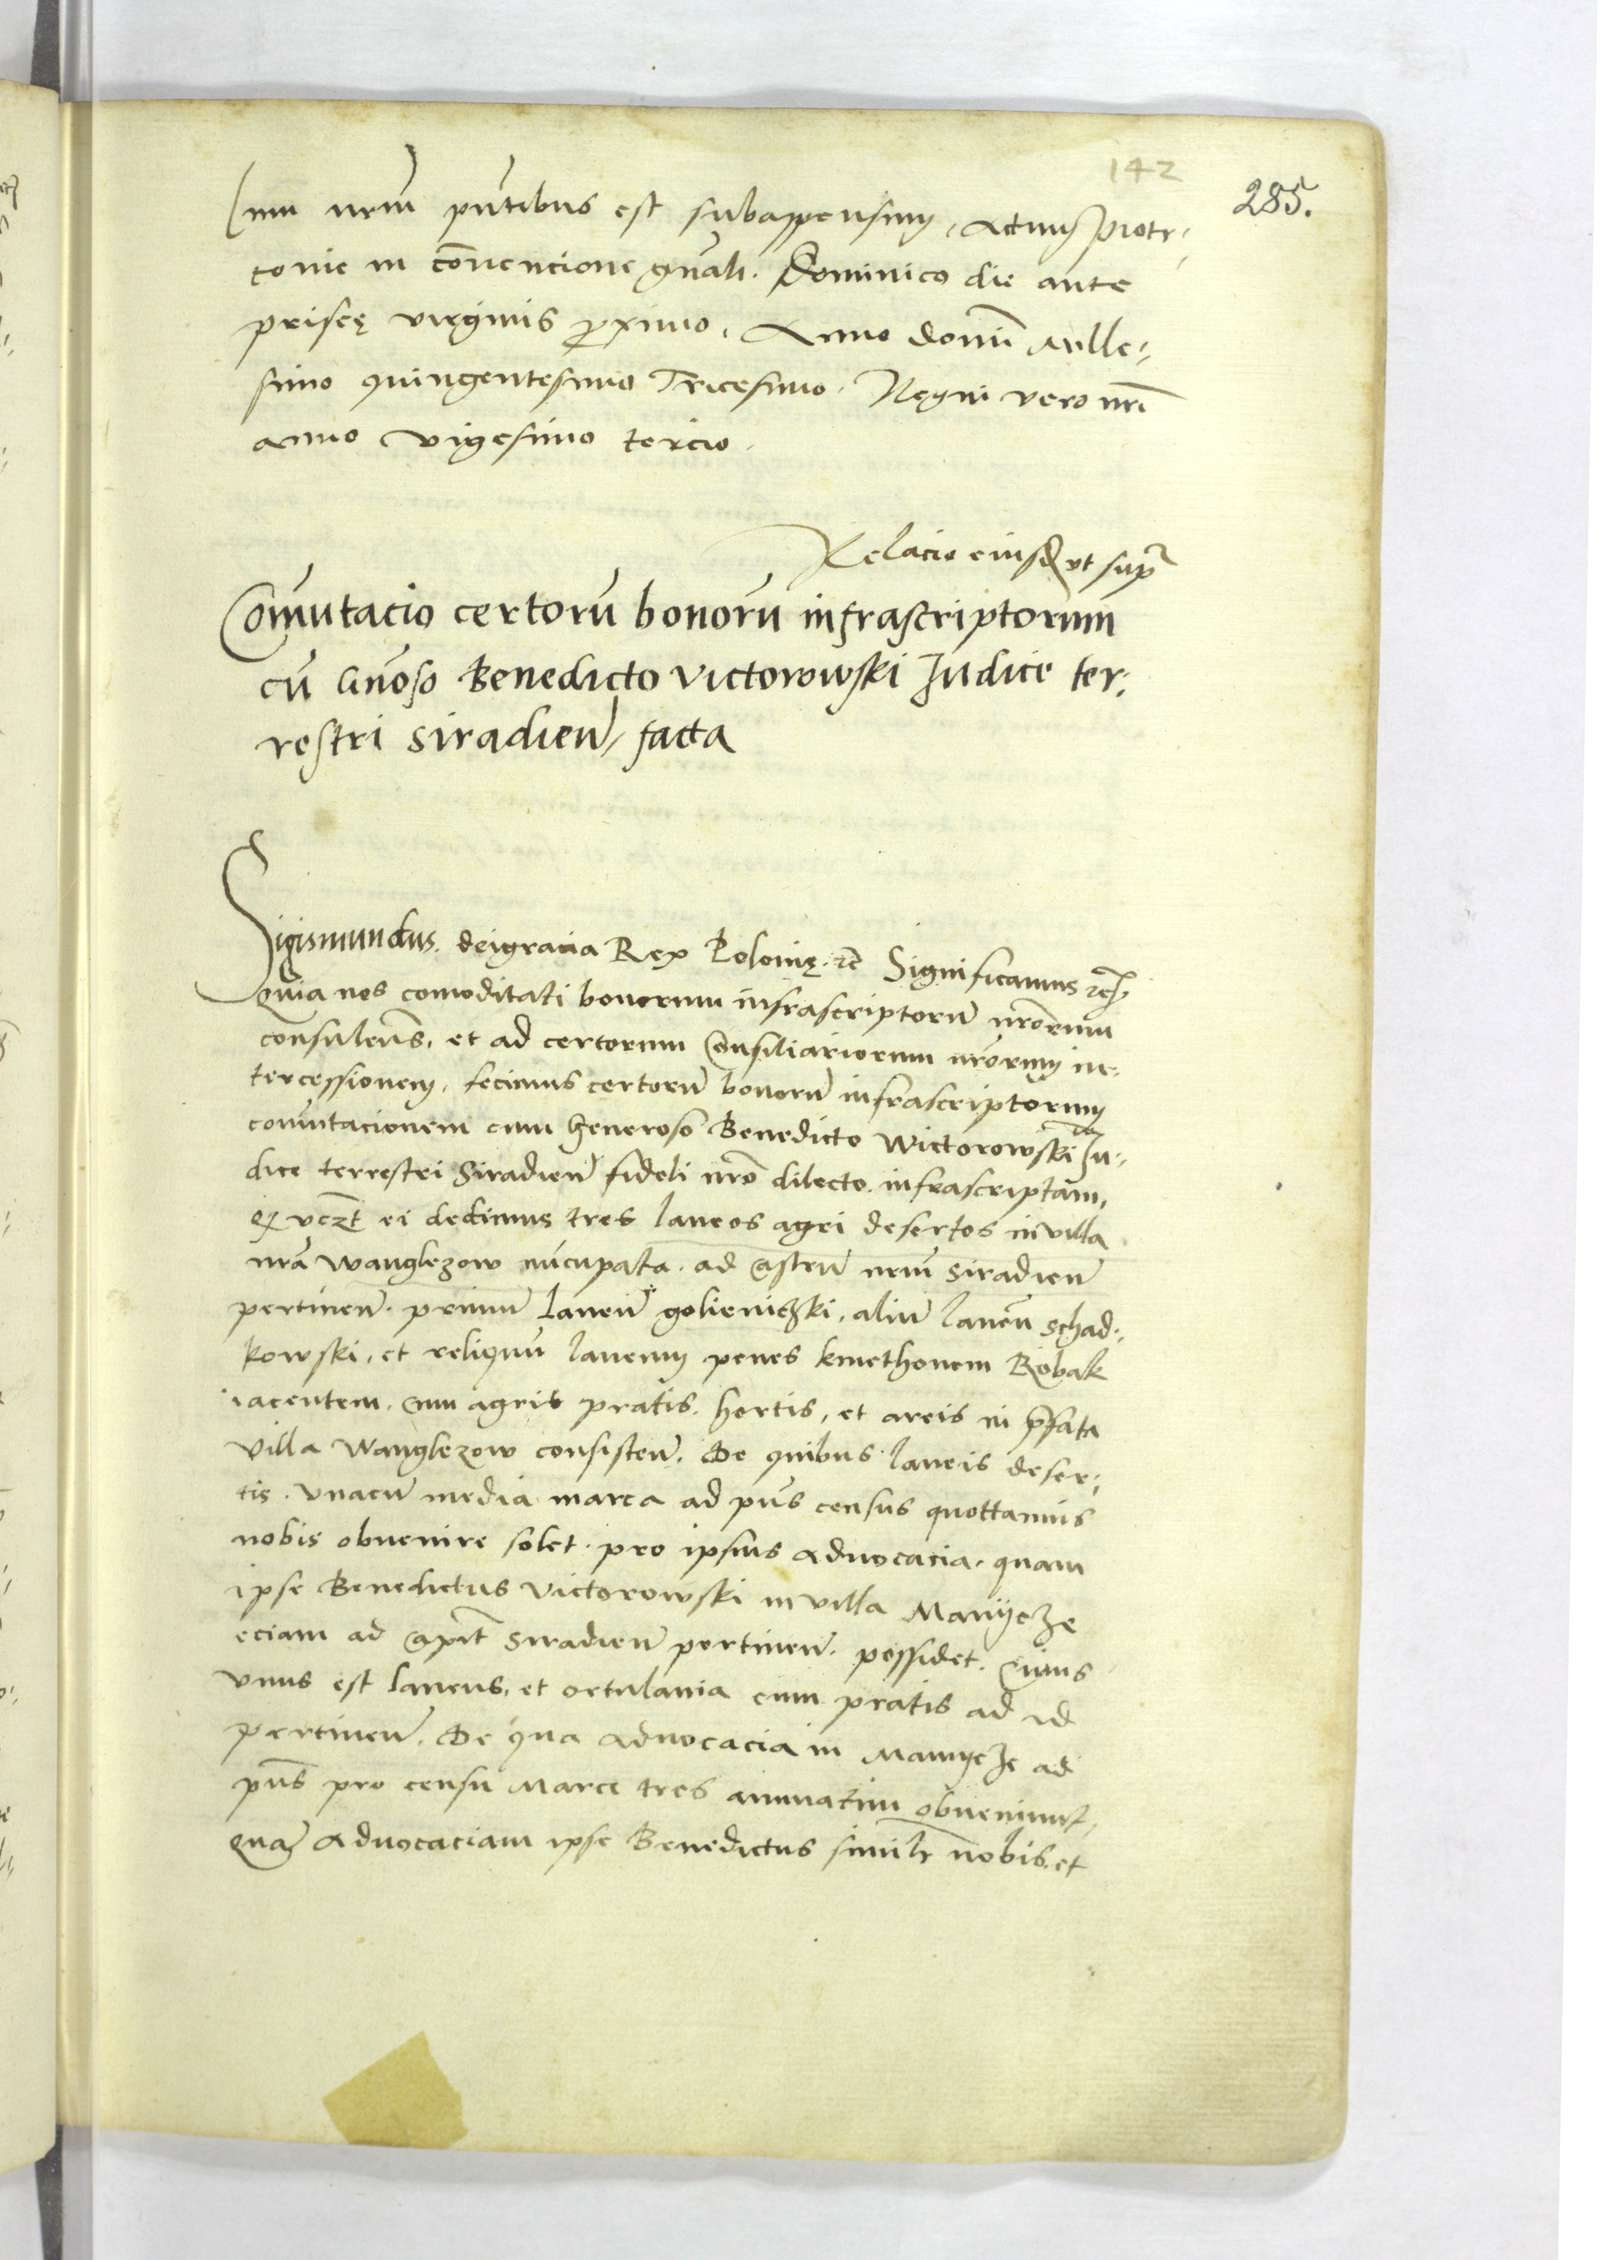 142
285.
lum nrm pñtibus est subappensum. Actum Piotr-
covie in cõvencione gñali. Dominico die ante
priscę virginis proximo. Anno domi Mille-
simo quingentesimo Tricesimo. Regni vero nri
anno vigesimo tercio.
Relacio eiusd ut supra
Comutacio certorũ bonorũ infrascriptorum
cũ Gñoso Benedicto Victorowski Iudice ter-
restri Siradien facta
Sigismundus dei gracia Rex Polonię etc Significamus etc
Quia nos comoditati bonorum infrascriptorũ nrorum
consulens, et ad certorum Consiliariorum nrorum in-
tercessionem, fecimus certorũ bonorũ infrascriptorum
comutacionem cum Generoso Benedicto Wictorowski Iu-
dice terrestri Siradien fideli nro dilecto infrascriptam,
Q vczt ei dedimus tres laneos agri desertos in villa
nra Wanglezow nũcupata ad Castrũ nrm Siradien
pertinen. primũ laneũ golieniczki, aliũ laneũ Schad-
kowski, et reliquũ laneum penes kmethonem Robak
iacentem, cum agris pratis hortis, et areis in prefata
villa Wanglezow consisten. De quibus laneis deser-
tis unacũ media marca ad pñs census quottannis
nobis obvenire solet pro ipsius advocacia, quam
ipse Benedictus Victorowski in villa Manijcze
eciam ad Capit Siradien pertinen possidet. Cuius
unus est laneus, et ortulania cum pratis ad id
pertinen. De qua advocacia in Manijcze ad
pñs pro censu Marce tres annuatim obveniunt,
quã Advocaciam ipse Benedictus similr nobis, et